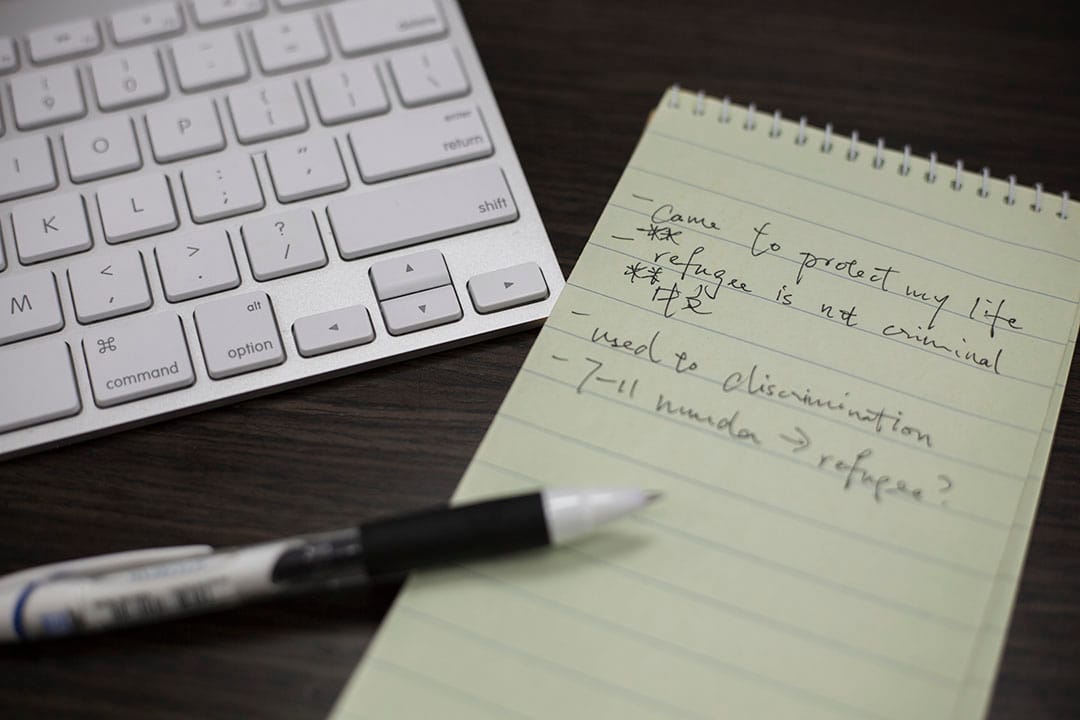 delete
9 0 - + =
I O P { [ } ] | \
enter
return
K L : ; " '
shift
M < , > . ? /
⌘
command
alt
option
- Came to protect my life
**
- refugee is not criminal
**
- used to discrimination
- 7-11 murder → refugee?